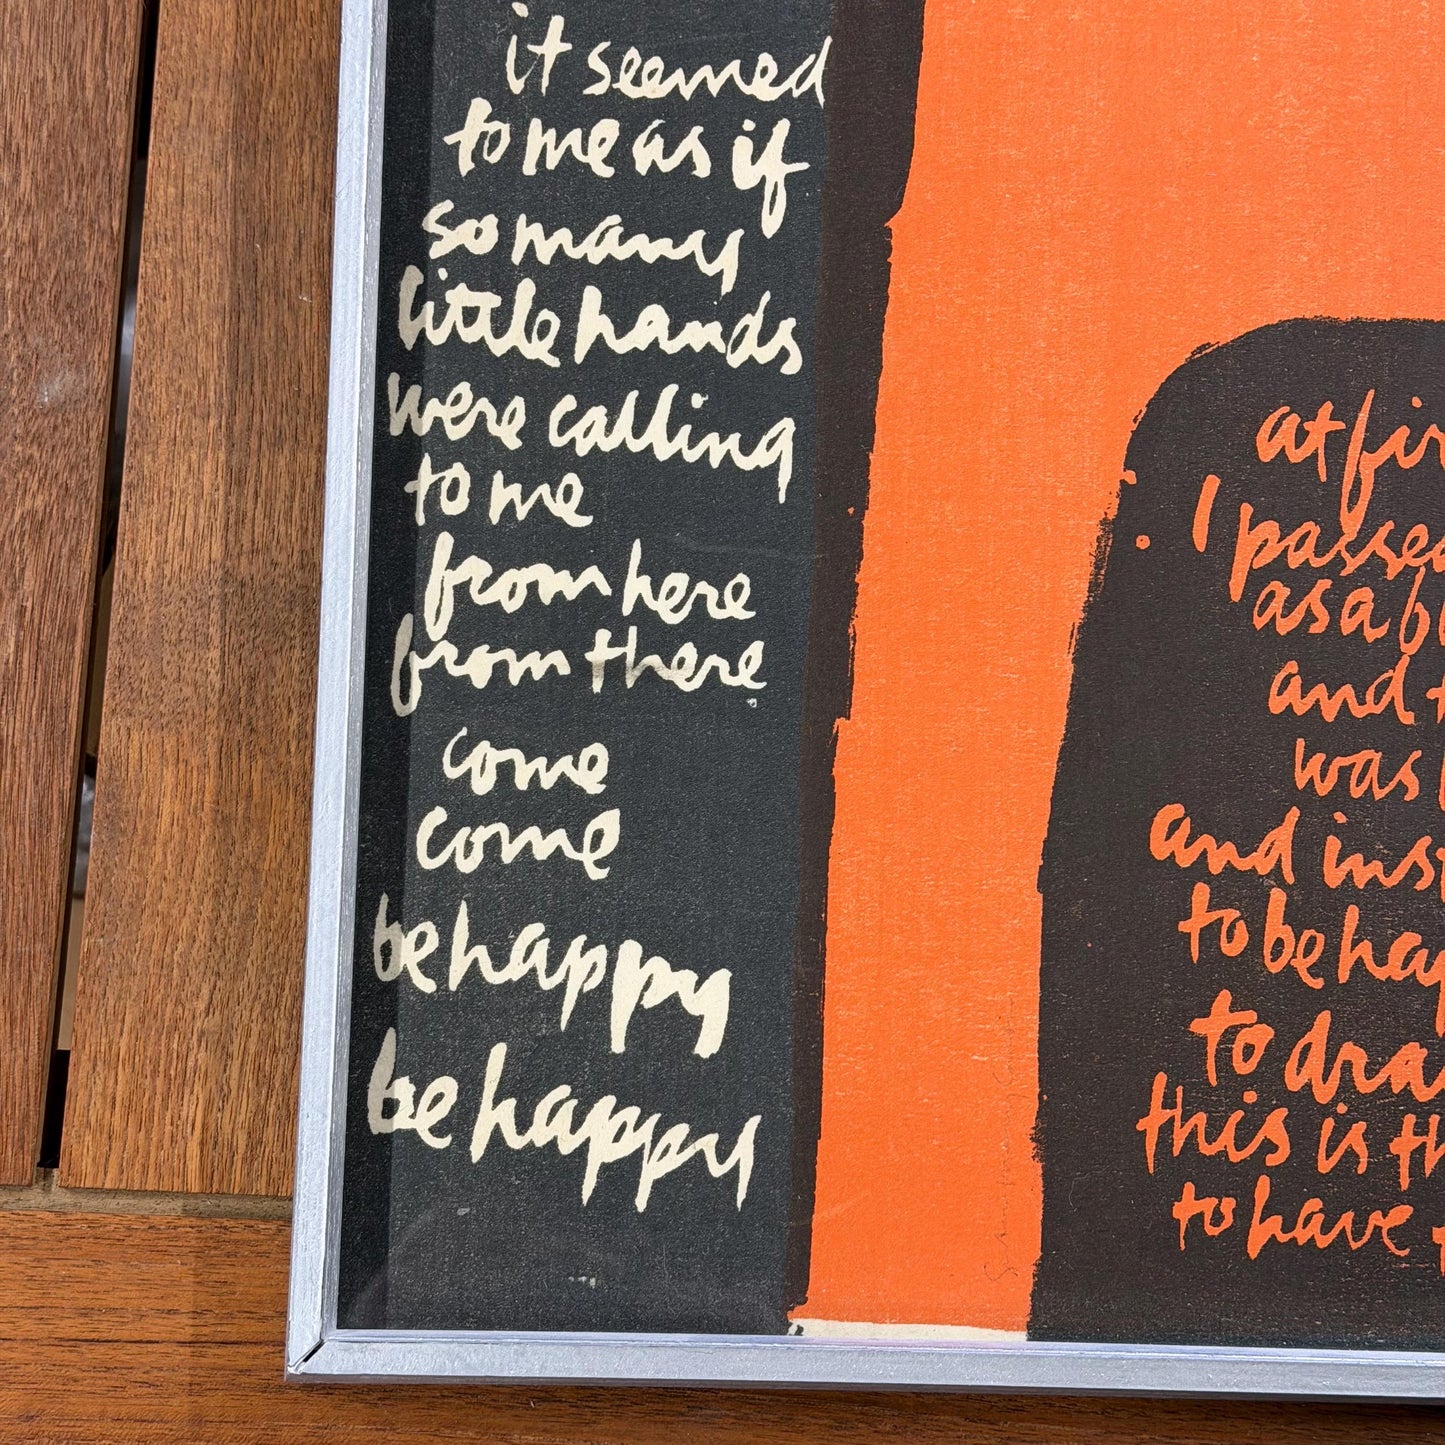 it seemed
to me as if
so many
little hands
were calling
to me
from here
from there
come
come
be happy
be happy
at fir
I passed
as a
and t
was
and inst
to be hap
to dra
this is th
to have